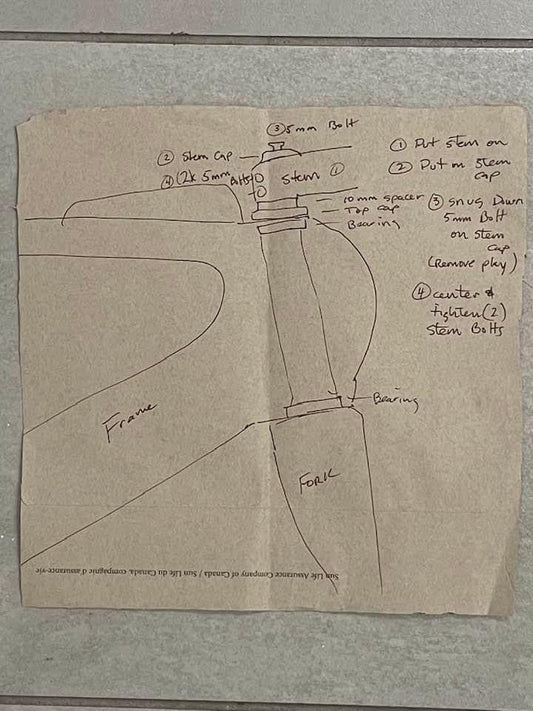 ③ 5mm Bolt
② Stem Cap
④ (2x 5mm Bolts)
Stem ①
10mm spacer
Top cap
Bearing
① Put stem on
② Put on stem
cap
③ Snug Down
5mm Bolt
on stem
cap
(Remove play)
④ center &
tighten (2)
stem Bolts
Bearing
Frame
FORK
Sun Life Assurance Company of Canada / Sun Life du Canada, compagnie d'assurance-vie